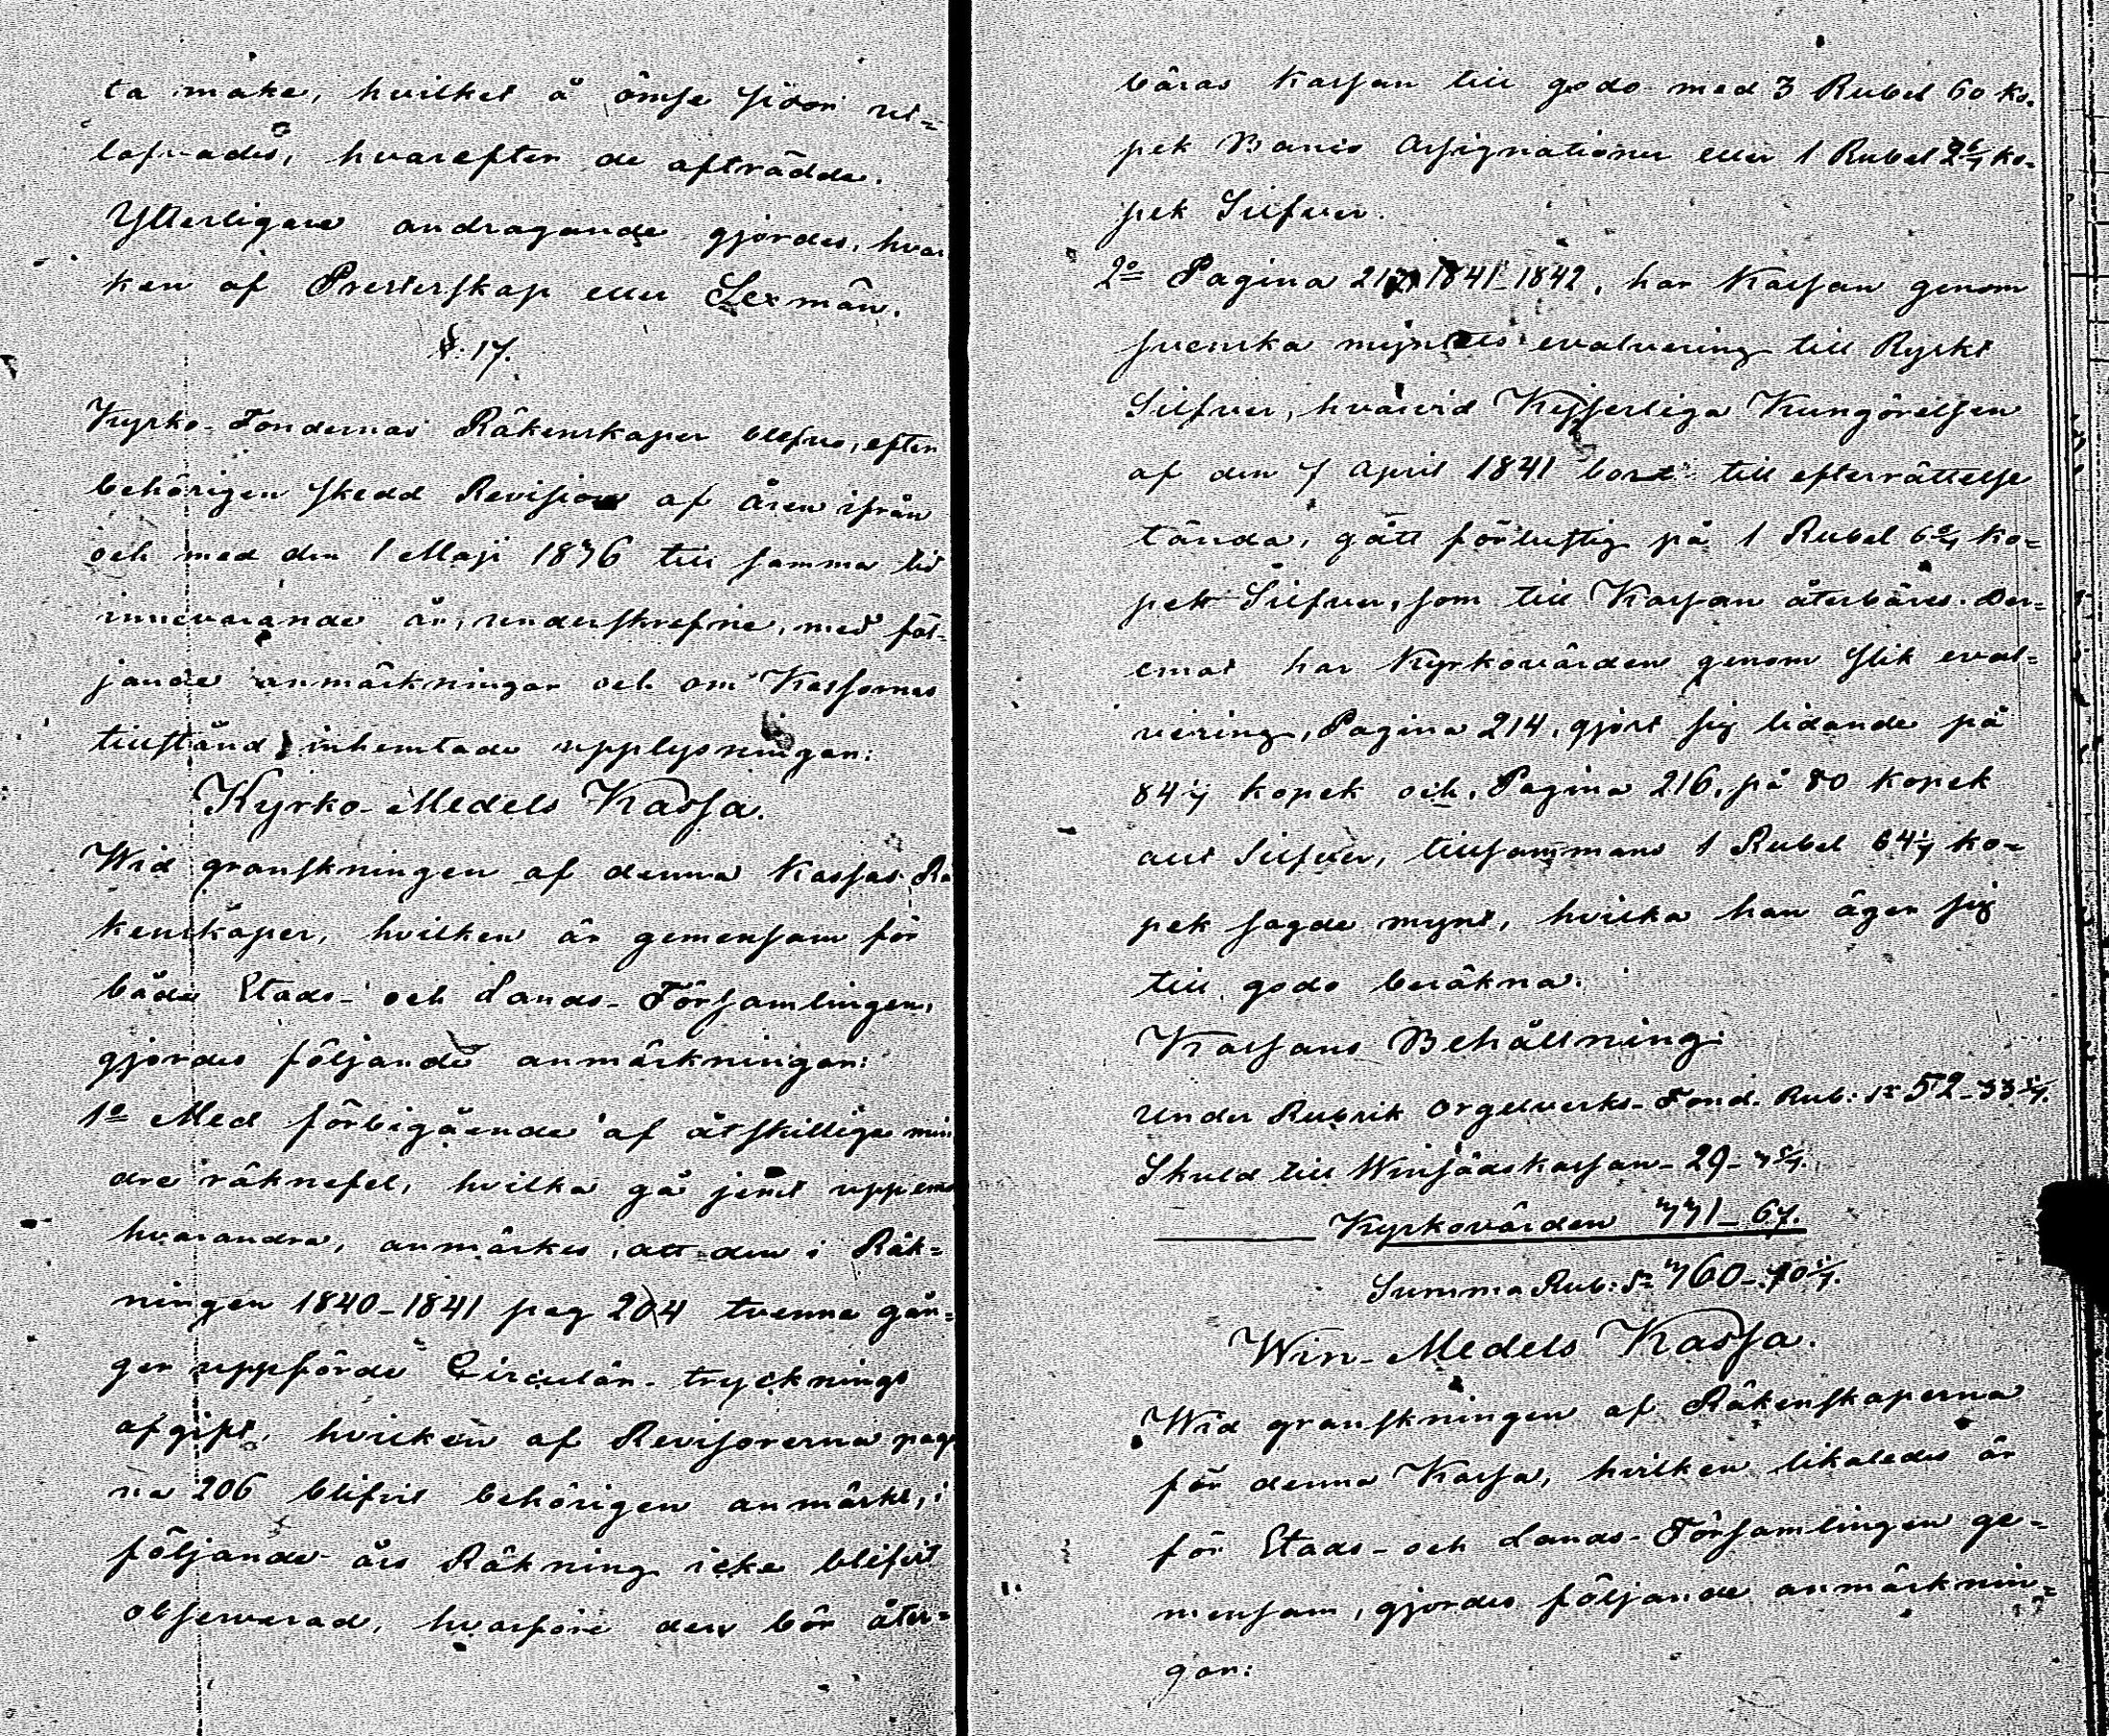 ta make, hvilket å ömse sidor ut-
lofvades, hvarefter de afträdde.
Ytterligare andragande gjordes, hvar
ken af Presterskap eller Sexmän.
§. 17.
Kyrko-Fondernas Räkenskaper blefvo, efter
behörigen skedd Revision af åren ifrån
och med den 1 Maji 1836 till samma tid
innevarande år, underskrefne, med föl-
jande anmärkningar och om Kassornas
tillstånd inhemtade upplysningar:
Kyrko-Medels Kassa.
Wid granskningen af denna Kassas Rä
kenskaper, hvilken är gemensam för
både Stads- och Lands-Församlingen,
gjordes följande anmärkningar:
1º Med förbigående af åtskillige min
dre räknefel, hvilka gå jemt upp emot
hvarandra, anmärkes, att den i Räk-
ningen 1840-1841 pag 204 tvenne gån-
ger uppförde Circulär-trycknings
afgift, hvilken af Revisorerna pagi
na 206 blifvit behörigen anmärkt, i
följande års Räkning icke blifvit
observerad, hvarföre den bör åter-
bäras Kassan till godo med 3 Rubel 60 ko-
pek Banco Assignationer eller 1 Rubel ko-
pek Silfver.
2º Pagina 1841-1842, har Kassan genom
svenska myntets evalvering till Ryskt
Silfver, hvarvid Kejserliga Kungörelsen
af den April 1841 bort till efterrättelse
tända, gått förlustig på 1 Rubel ko-
pek Silfver, som till Kassan återbäres. Der-
emot har Kyrkovärden genom slik eval-
vering, Pagina 214, gjort sig lidande på
kopek och, Pagina 216, på 80 kopek
allt Silfver, tillsammans 1 Rubel ko-
pek sagde mynt, hvilka han äger sig
till godo beräkna.
Kassans Behållning:
Under Rubrik Orgelverks-Fond. Rub: Sr 52-
Skuld till Winsädskassan - 29 -
Kyrkovärden 331 - 67.
Summa Rub: Sr
Win-Medels Kassa.
Wid granskningen af Räkenskaperna
för denna Kassa, hvilken likaledes är
för Stads- och Lands-Församlingen ge-
mensam, gjordes följande anmärknin-
gar: